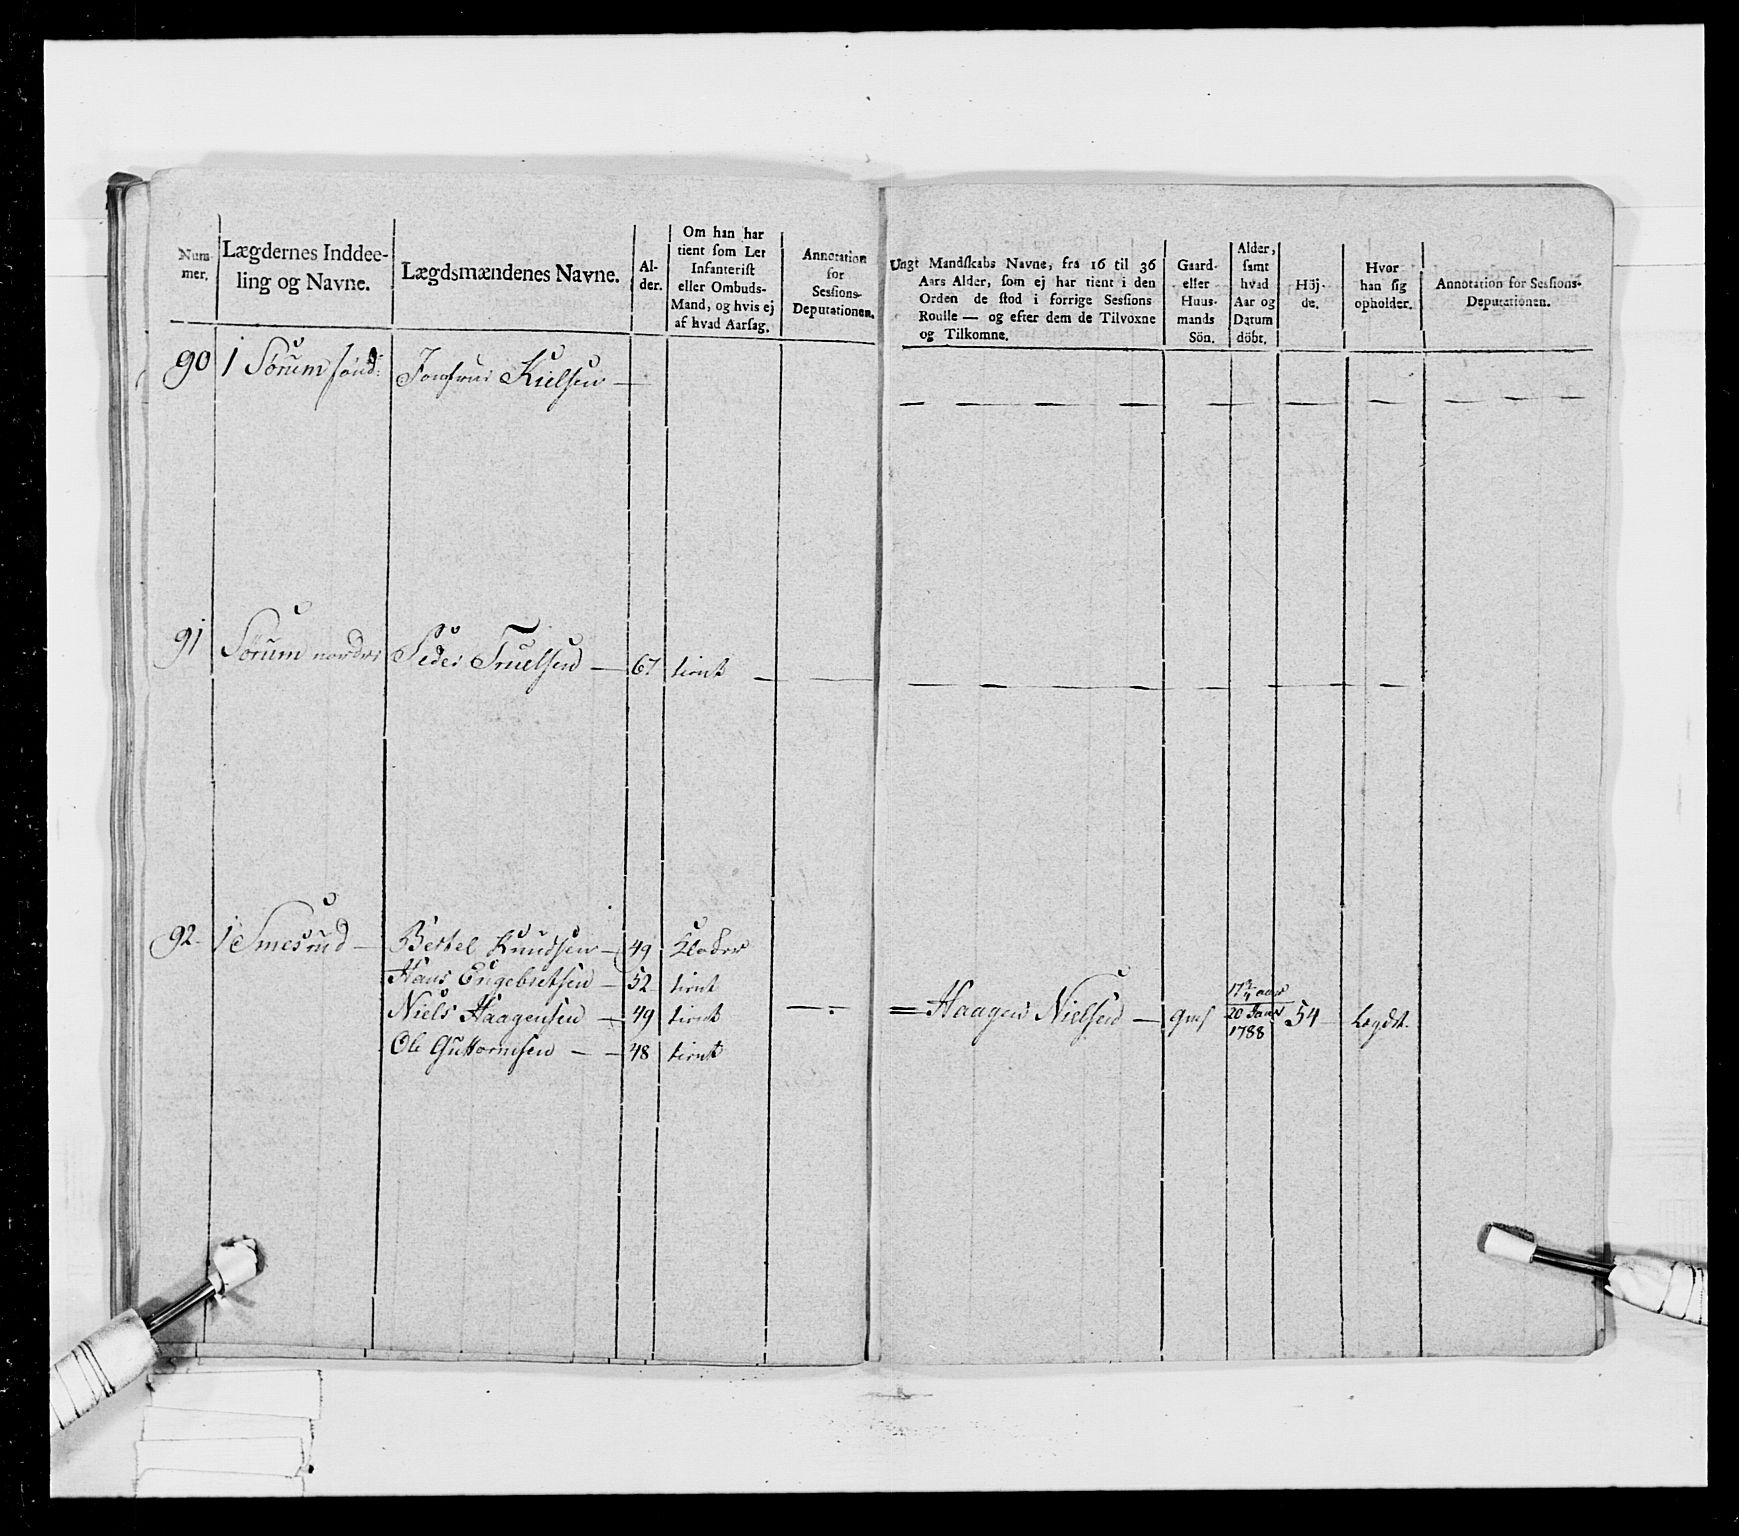 Num-
mer.
Lægdernes Inddee-
ling og Navne.
Lægdsmændenes Navne.
Al-
der.
Om han har
tient som Let
Infanterist
eller Ombuds-
Mand, og hvis ej
af hvad Aarsag.
Annotation
for
Sessions-
Deputationen.
Ungt Mandskabs Navne, fra 16 til 36
Aars Alder, som ej har tient i den
Orden de stod i forrige Sessions
Roulle — og efter dem de Tilvoxne
og Tilkomne.
Gaard-
eller
Huus-
mands
Sön.
Alder,
samt
hvad
Aar og
Datum
döbt.
Höj-
de.
Hvor
han sig
opholder.
Annotation for Sessions-
Deputationen.
90 1 Sörum sönd: Kielsen —
91 Sörum nordre Peder Truelsen — 67 tient
92. 1 Smesrud — Bertel Knudsen — 49
Hans Engebretsen — 52 tient
Niels Haagensen — 49 tient — = Haagen Nielsen — 20 Janr 1788 54 Lægdet.
Ole Guttormsen — — 48 tient